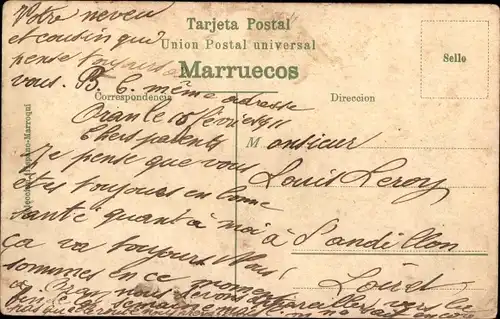 Tarjeta Postal
Union Postal universal
Marruecos
Correspondencia
Direccion
Sello
Hispano-Marroqui
Votre neveu
et cousin qui
pense toujours a
vous. B. C. même adresse
Oran le 15 février 1911
Chers parents
Je pense que vous
etes toujours en bonne
santé quant à moi
ça va toujours. Nous
sommes en ce moment
à Oran nous
Monsieur
Louis Leroy
à Sandillon
Loiret